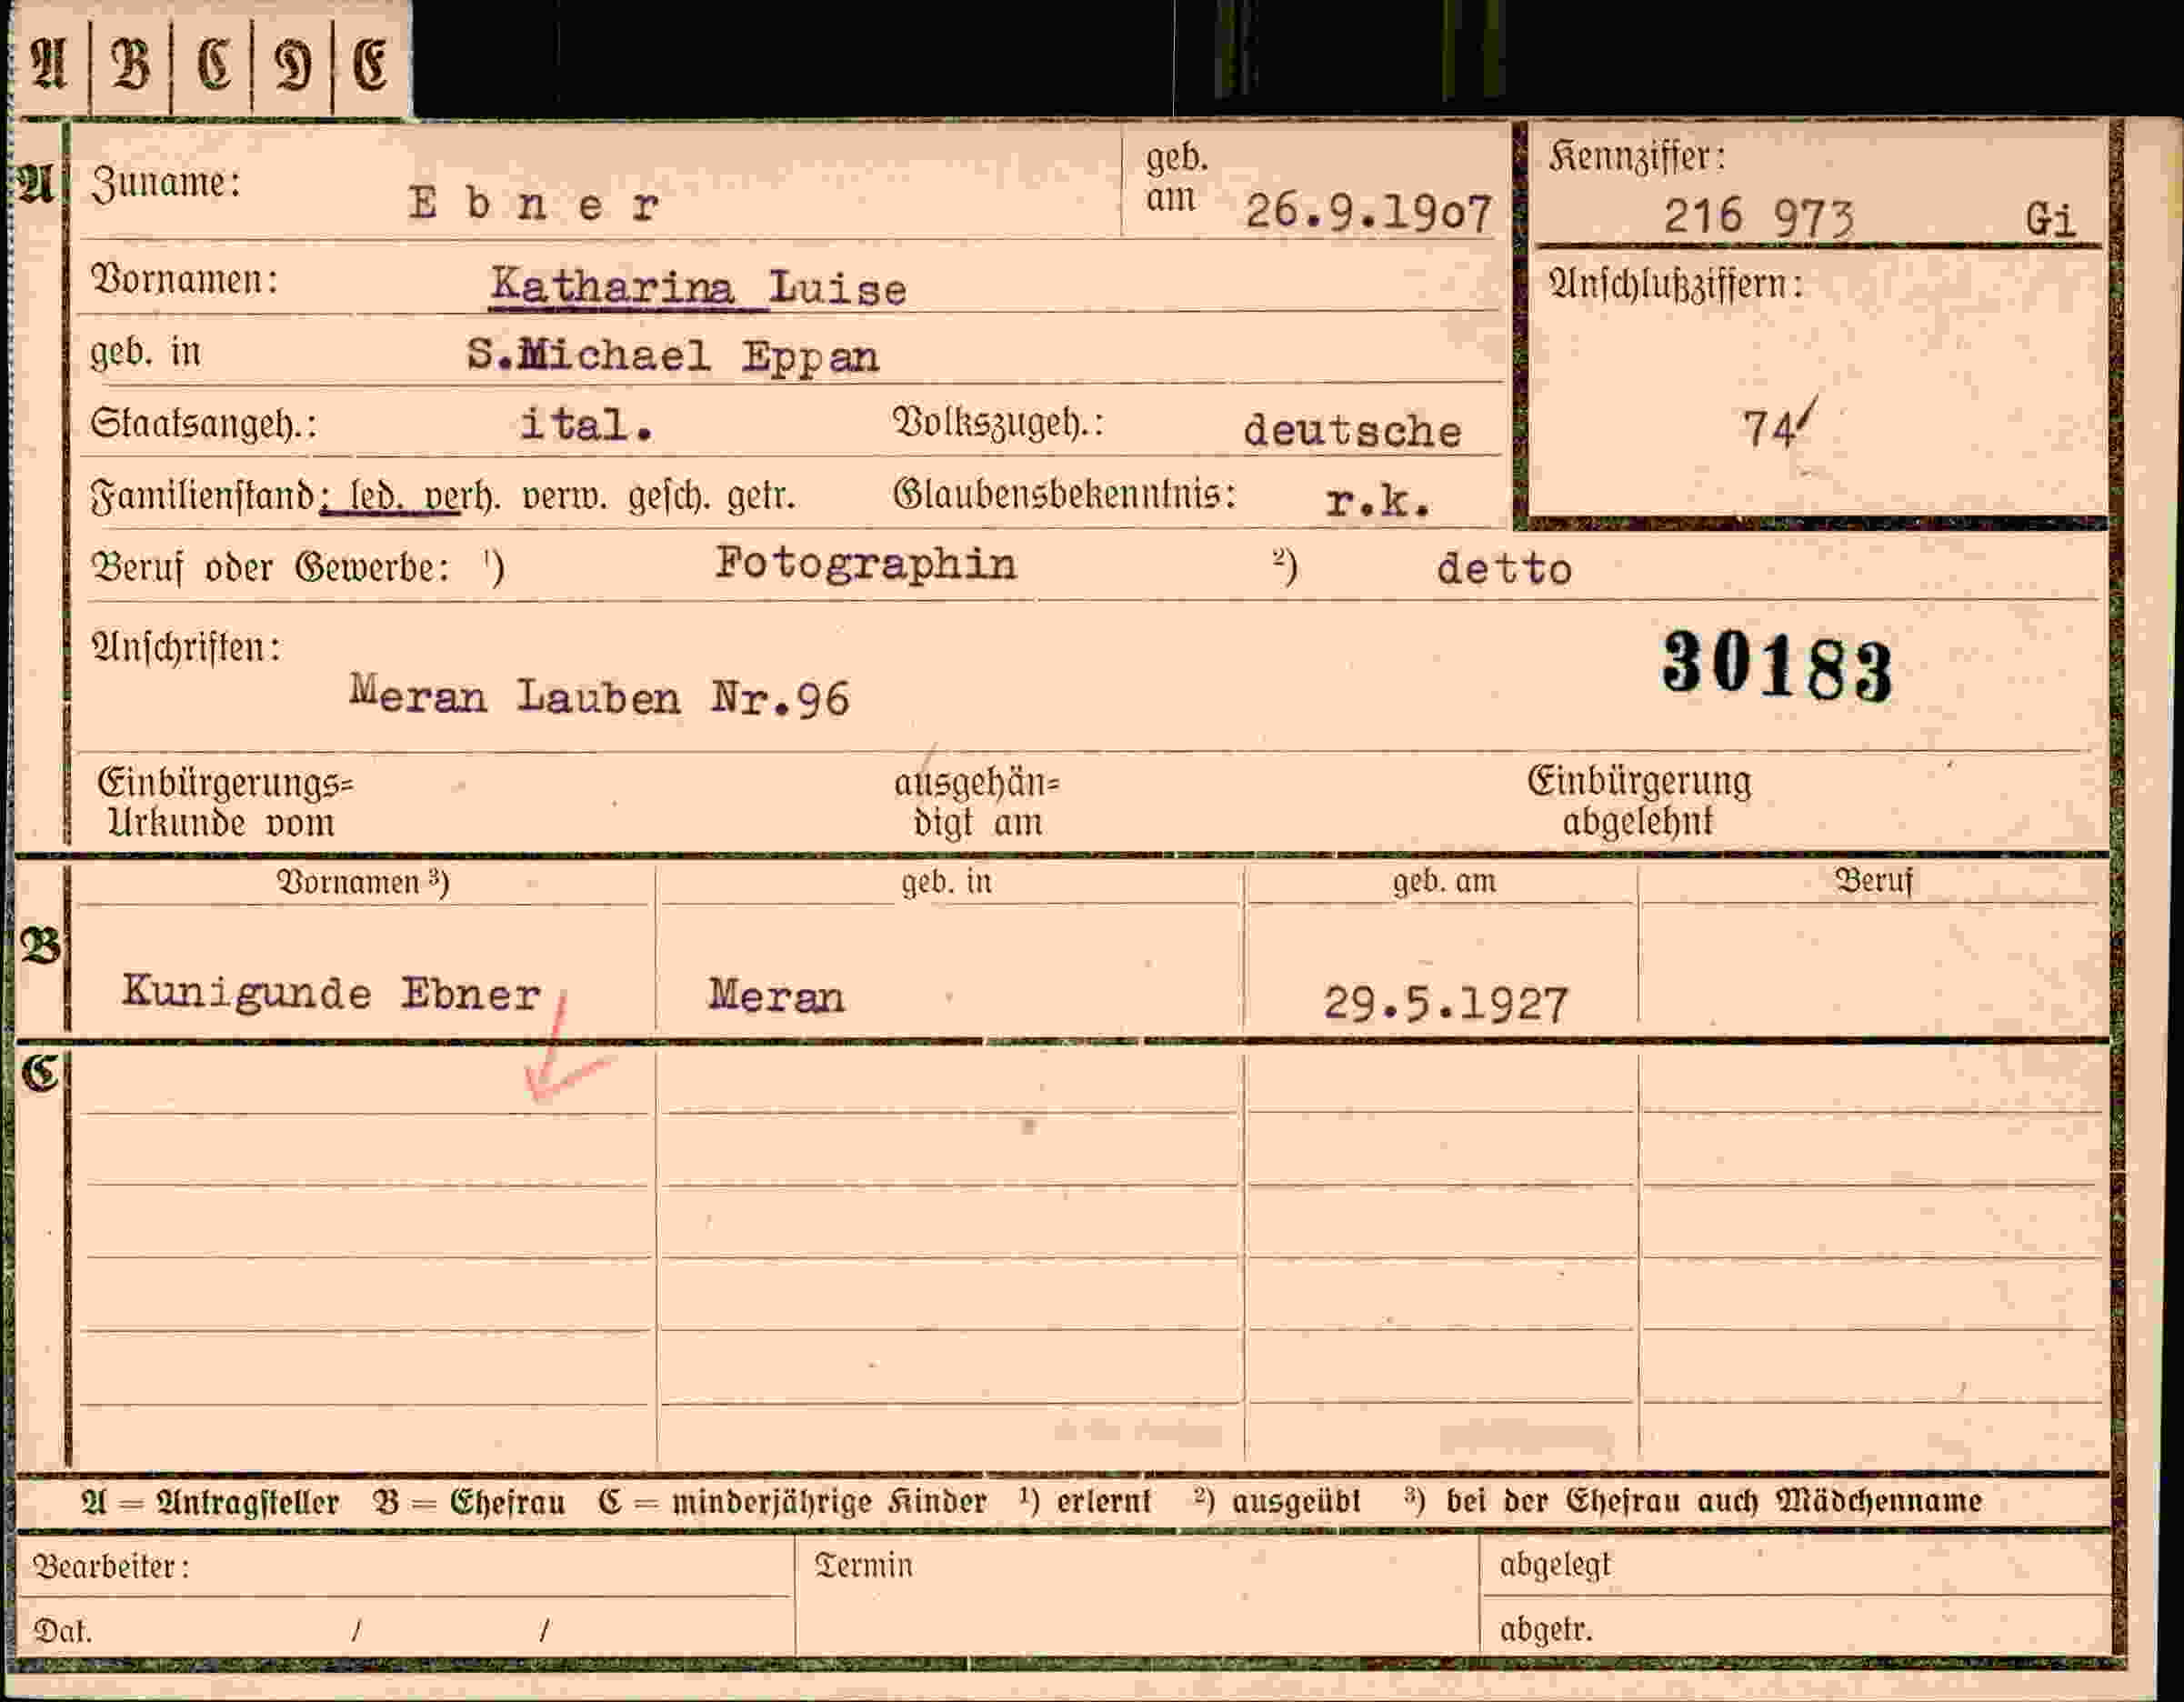 A B C D E
A Zuname: Ebner geb. am 26.9.1907 Kennziffer: 216 973 Gi
Vornamen: Katharina Luise Anschlußziffern:
geb. in S.Michael Eppan
Staatsangeh.: ital. Volkszugeh.: deutsche 74
Familienstand: led. verh. verw. gesch. getr. Glaubensbekenntnis: r.k.
Beruf oder Gewerbe: 1) Fotographin 2) detto
Anschriften: 30183
Meran Lauben Nr.96
Einbürgerungs= ausgehän= Einbürgerung
Urkunde vom digt am abgelehnt
Vornamen 3) geb. in geb. am Beruf
B
Kunigunde Ebner Meran 29.5.1927
C
A = Antragsteller B = Ehefrau C = minderjährige Kinder 1) erlernt 2) ausgeübt 3) bei der Ehefrau auch Mädchenname
Bearbeiter: Termin abgelegt
Dat. / / abgetr.